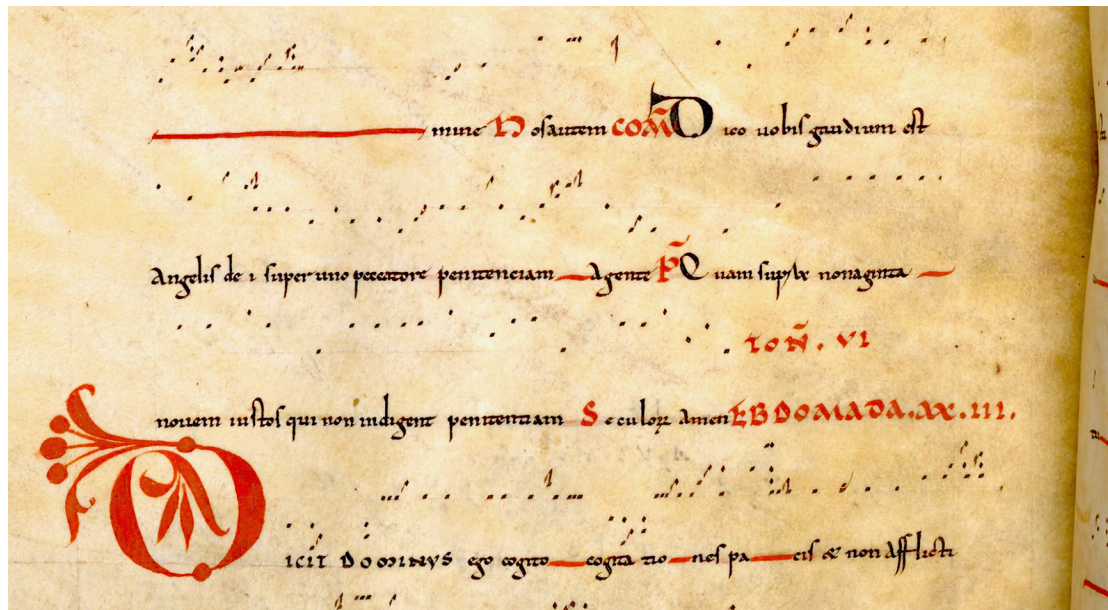 mine Nos autem COM̄ Dico uobis gaudium est
Angelis dei super uno peccatore penitenciam Agente P̄ Quam sup nonaginta
TOÑ. VI
nouem iustos qui non indigent penitentiam Seculoꝝ Amen EBDOMADA.XX.III.
DICIT DOMINVS ego cogito cogitationes pacis & non Afflicti